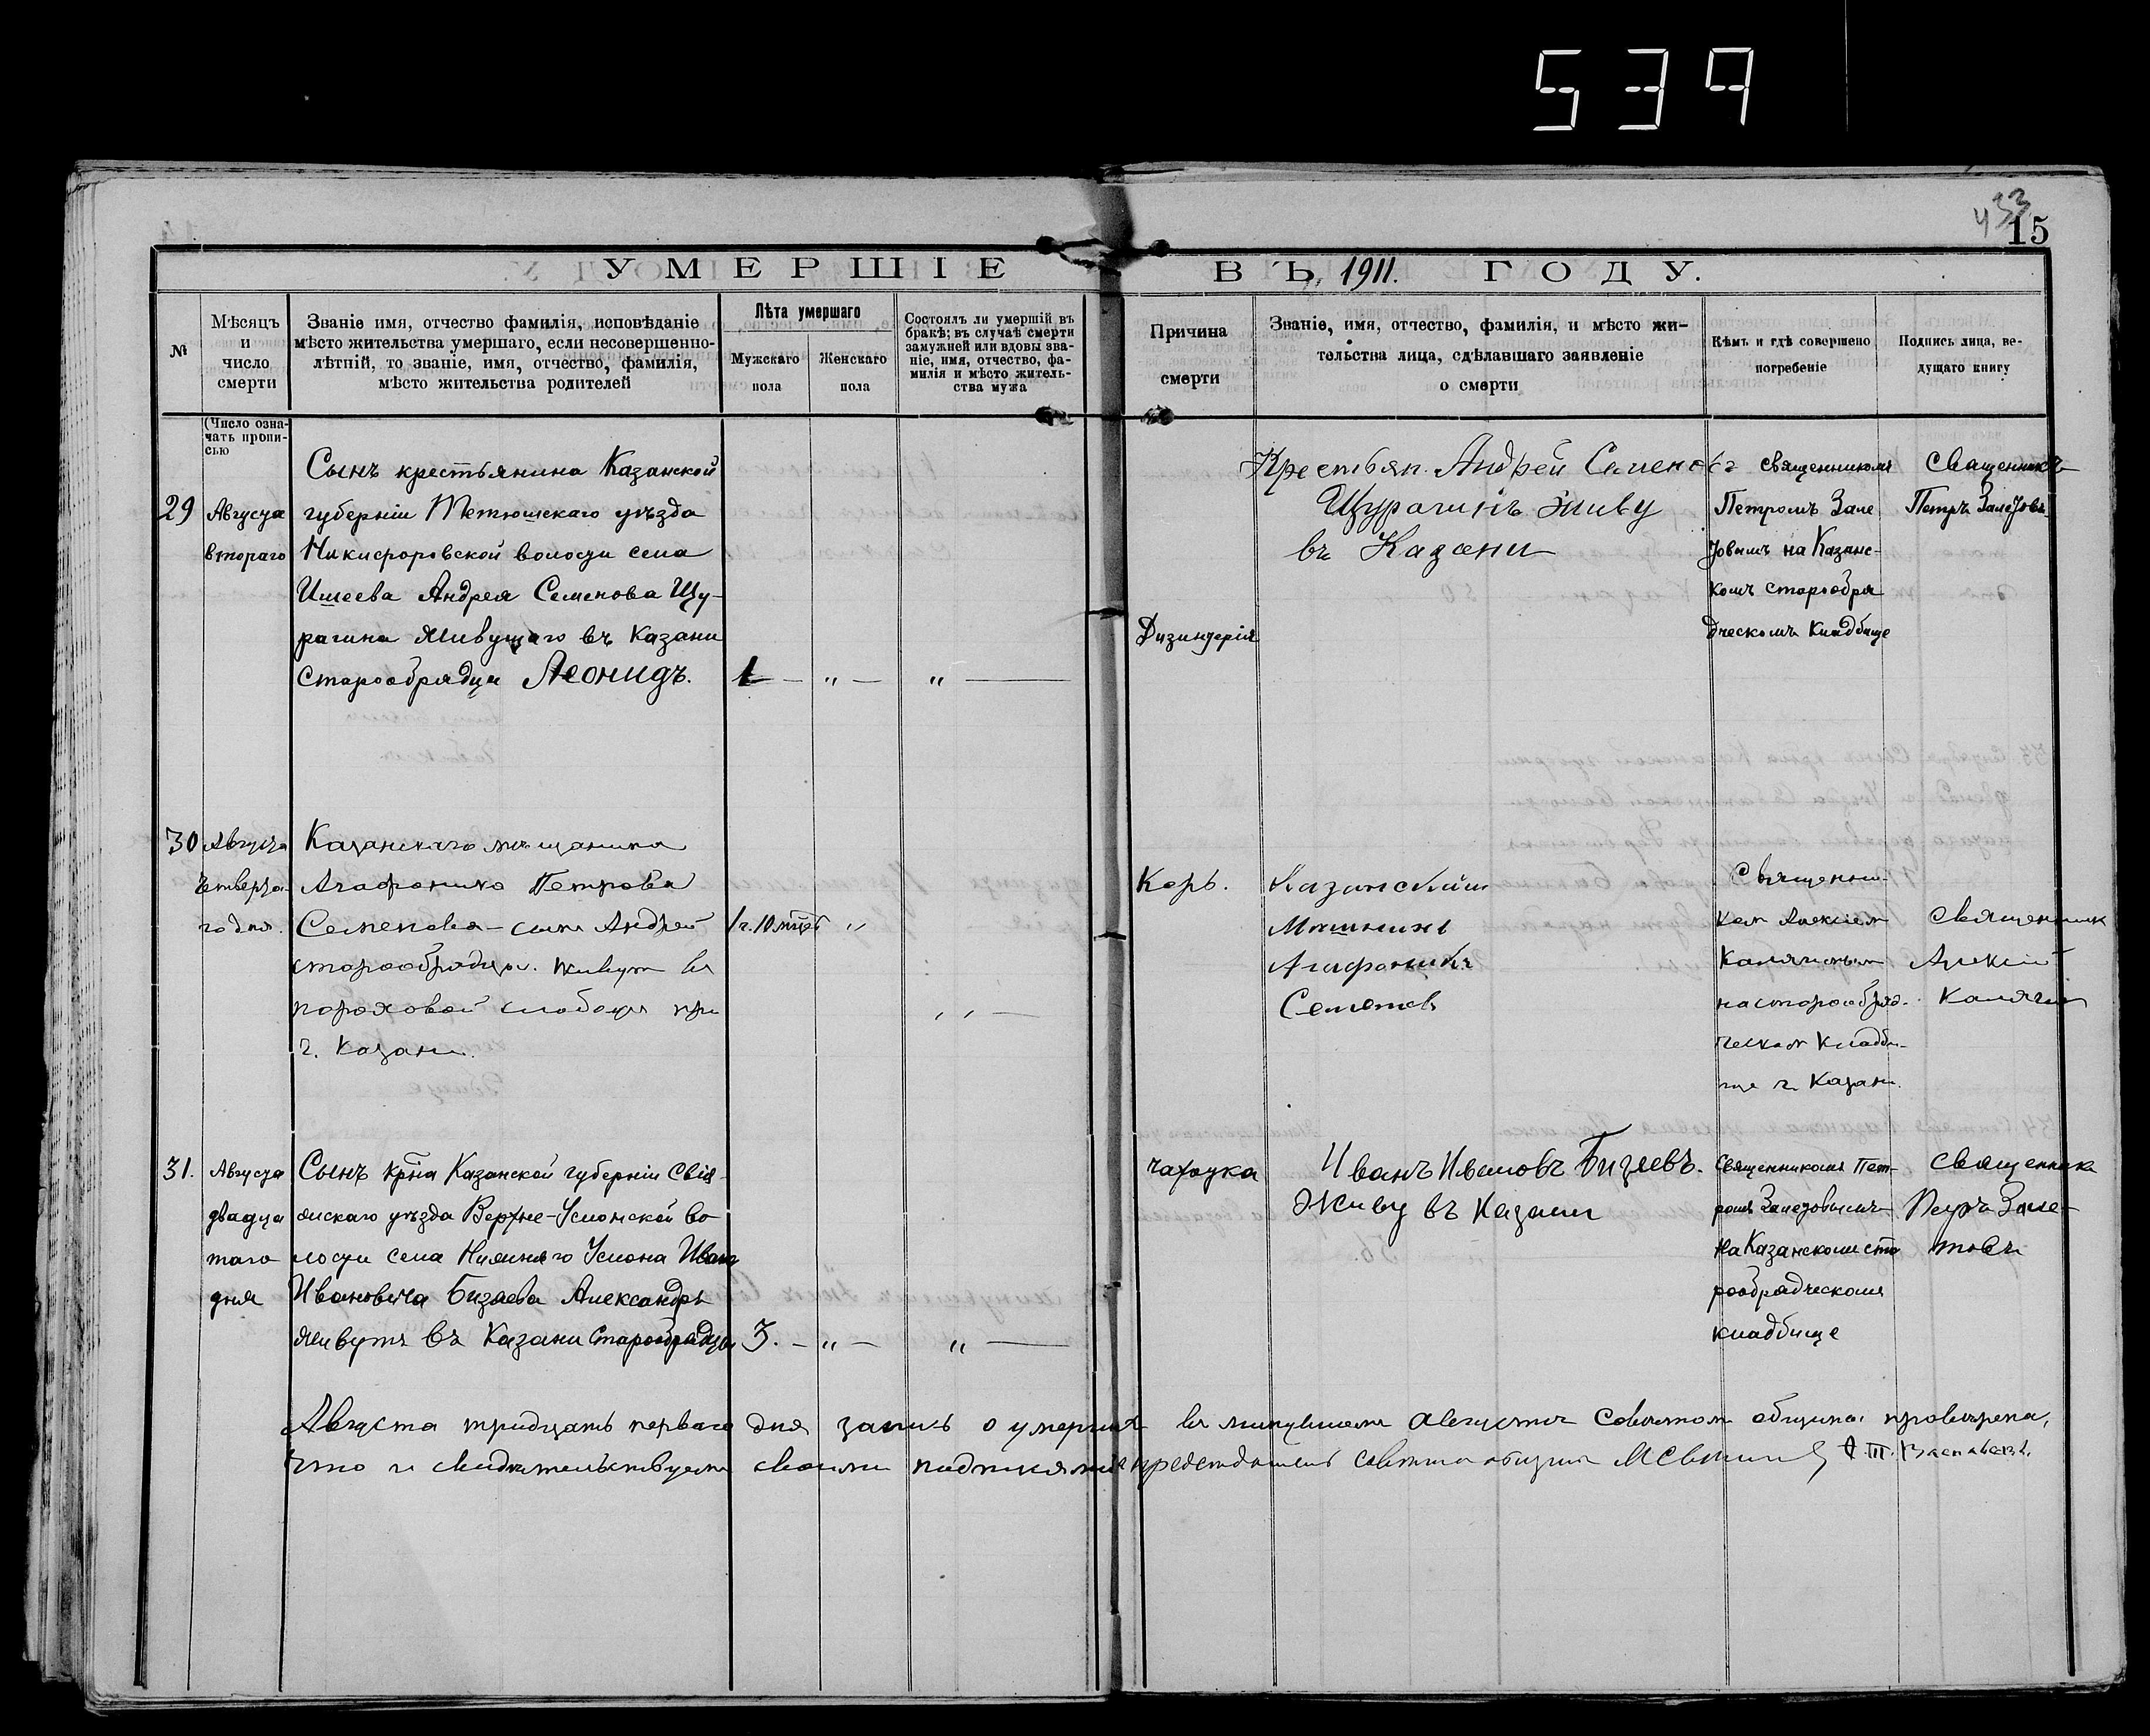 539
433
15
УМЕРШІЕ ВЪ 1911. ГОДУ.
№
Мѣсяцъ
и
число
смерти
Званіе имя, отчество фамилія, исповѣданіе
мѣсто жительства умершаго, если несовершенно-
лѣтній, то званіе, имя, отчество, фамилія,
мѣсто жительства родителей
Лѣта умершаго
Мужскаго
пола
Женскаго
пола
Состоялъ ли умершій въ
бракѣ; въ случаѣ смерти
замужней или вдовы зва-
ніе, имя, отчество, фа-
милія и мѣсто житель-
ства мужа
Причина
смерти
Званіе, имя, отчество, фамилія, и мѣсто жи-
тельства лица, сдѣлавшаго заявленіе
о смерти
Кѣмъ и гдѣ совершено
погребеніе
Подпись лица, ве-
дущаго книгу
(Число озна-
чать пропи-
сью
29
Августа
втораго
Сынъ крестьянина Казанской
губерніи Тетюшскаго уѣзда
Никифоровской волости села
Ишеева Андрея Семенова Щу-
рагина живущаго въ Казани
старообрядцы Леонидъ.
1 — „ — „ —
Дизинтерія
Крестьян. Андрей Семеновъ
Щурагинъ живу
въ Казани
священникомъ
Петромъ Зале
товымъ на Казанс-
комъ старообря
дческомъ кладбище
Священникъ
Петръ Залетовъ
30
Августа
четверта-
го дня.
Казанскаго мѣщанина
Агафоника Петрова
Семенова — сынъ Андрей
старообрядцы. живут въ
пороховой слободѣ при
г. Казани.
1 г. 10 мцев „
„ —
Корь.
Казанский
Мещанинъ
Агафоникъ
Семенов
Священни-
ком Алексiем
Калягиным
на старообряд-
ческом кладби-
ще г. Казани.
Священник
Алексій
Калягин
31.
Августа
двадца
таго
дня
Сынъ крⷭ҇на Казанской губерніи Свія-
жскаго уѣзда Верхне-Услонской во
лости села Нижняго Услона Иванъ
Ивановича Бизяева Александръ
живутъ въ Казани Старообрядцы
3. — „ — „ —
чахотка
Иванъ Ивановъ Бизяевъ.
Живу въ Казани
Священникомъ Пет-
ромъ Залетовымъ
на Казанскомъ ста
рообрядческомъ
кладбище
Священникъ
Петръ Зале-
товъ
Августа тридцать перваго дня запись о умершихъ въ минувшемъ августѣ Советом общины проверена,
что и свидѣтельствуемъ своими подписями председатель совѣта общины